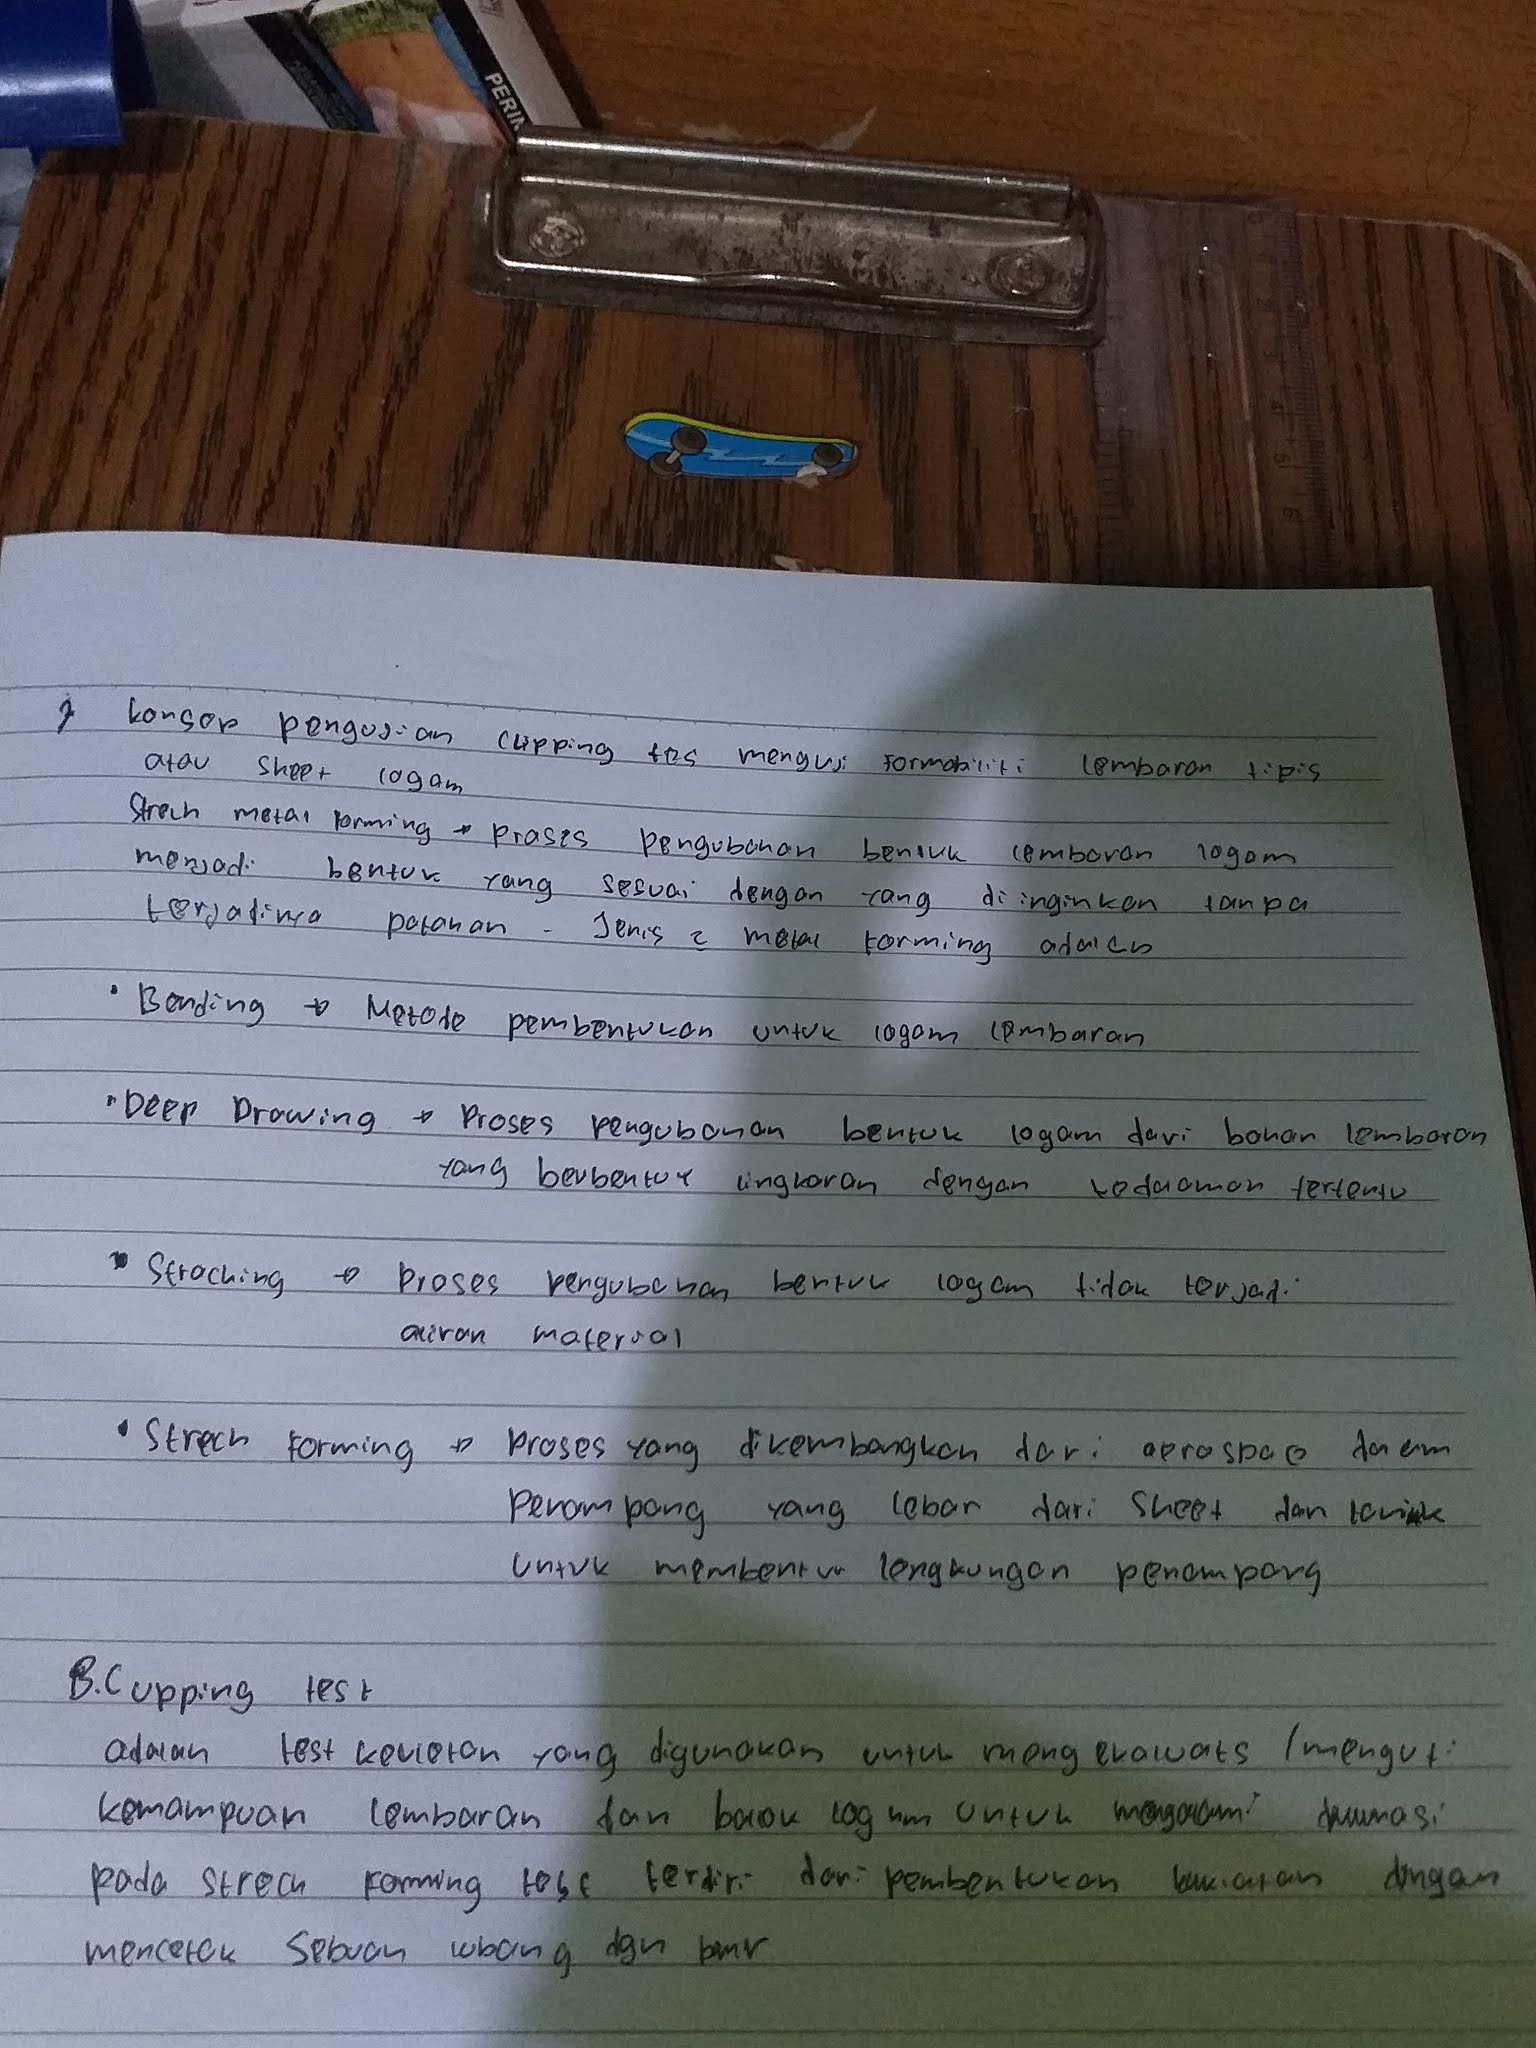 PERIN
1 konsep pengujian cupping tes menguji formabiliti lembaran tipis
atau sheet logam
Strech metal forming → proses pengubahan bentuk lembaran logam
menjadi bentuk yang sesuai dengan yang diinginkan tanpa
terjadinya patahan - Jenis 2 metal forming adalah
• Bending → Metode pembentukan untuk logam lembaran
• Deep Drawing → Proses pengubahan bentuk logam dari bahan lembaran
yang berbentuk lingkaran dengan kedalaman tertentu
• Straching → proses pengubahan bentuk logam tidak terjadi
aliran material
• Strech forming → proses yang dikembangkan dari aerospace dalam
penampang yang lebar dari sheet dan tarik
untuk membentuk lengkungan penampang
B. Cupping test
adalah test keuletan yang digunakan untuk menguji
kemampuan lembaran dan balok logam untuk mengalami
pada strech forming test terdiri dari pembentukan dengan
mencetak sebuah lubang dgn